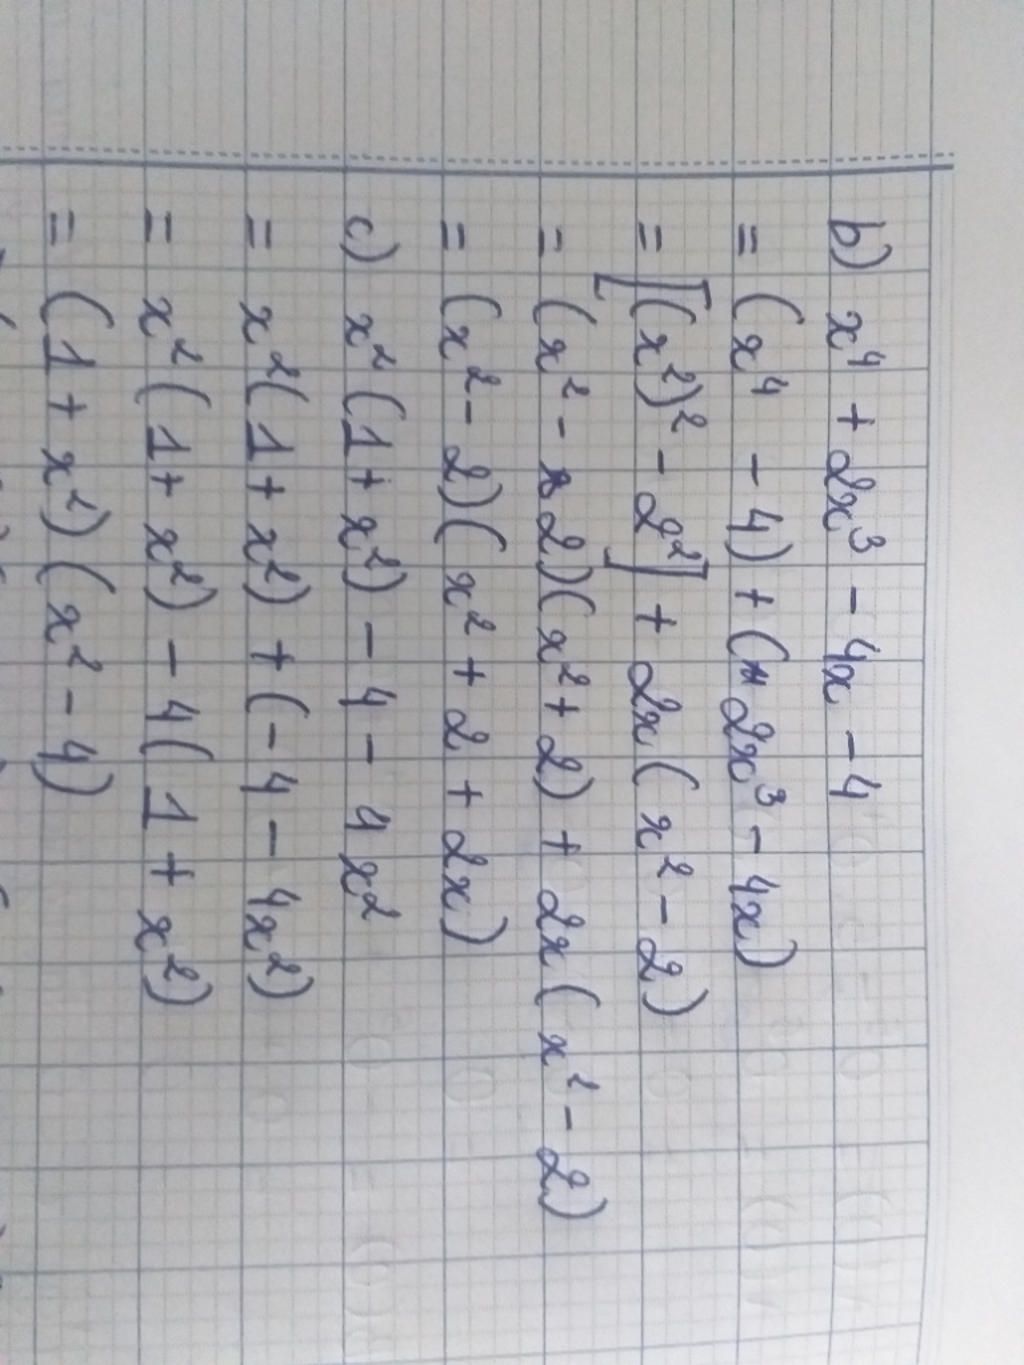 b) x⁴ + 2x³ - 4x - 4
= (x⁴ - 4) + (2x³ - 4x)
= [(x²)² - 2²] + 2x(x² - 2)
= (x² - 2)(x² + 2) + 2x(x² - 2)
= (x² - 2)(x² + 2 + 2x)
c) x²(1 + x²) - 4 - 4x²
= x²(1 + x²) + (-4 - 4x²)
= x²(1 + x²) - 4(1 + x²)
= (1 + x²)(x² - 4)